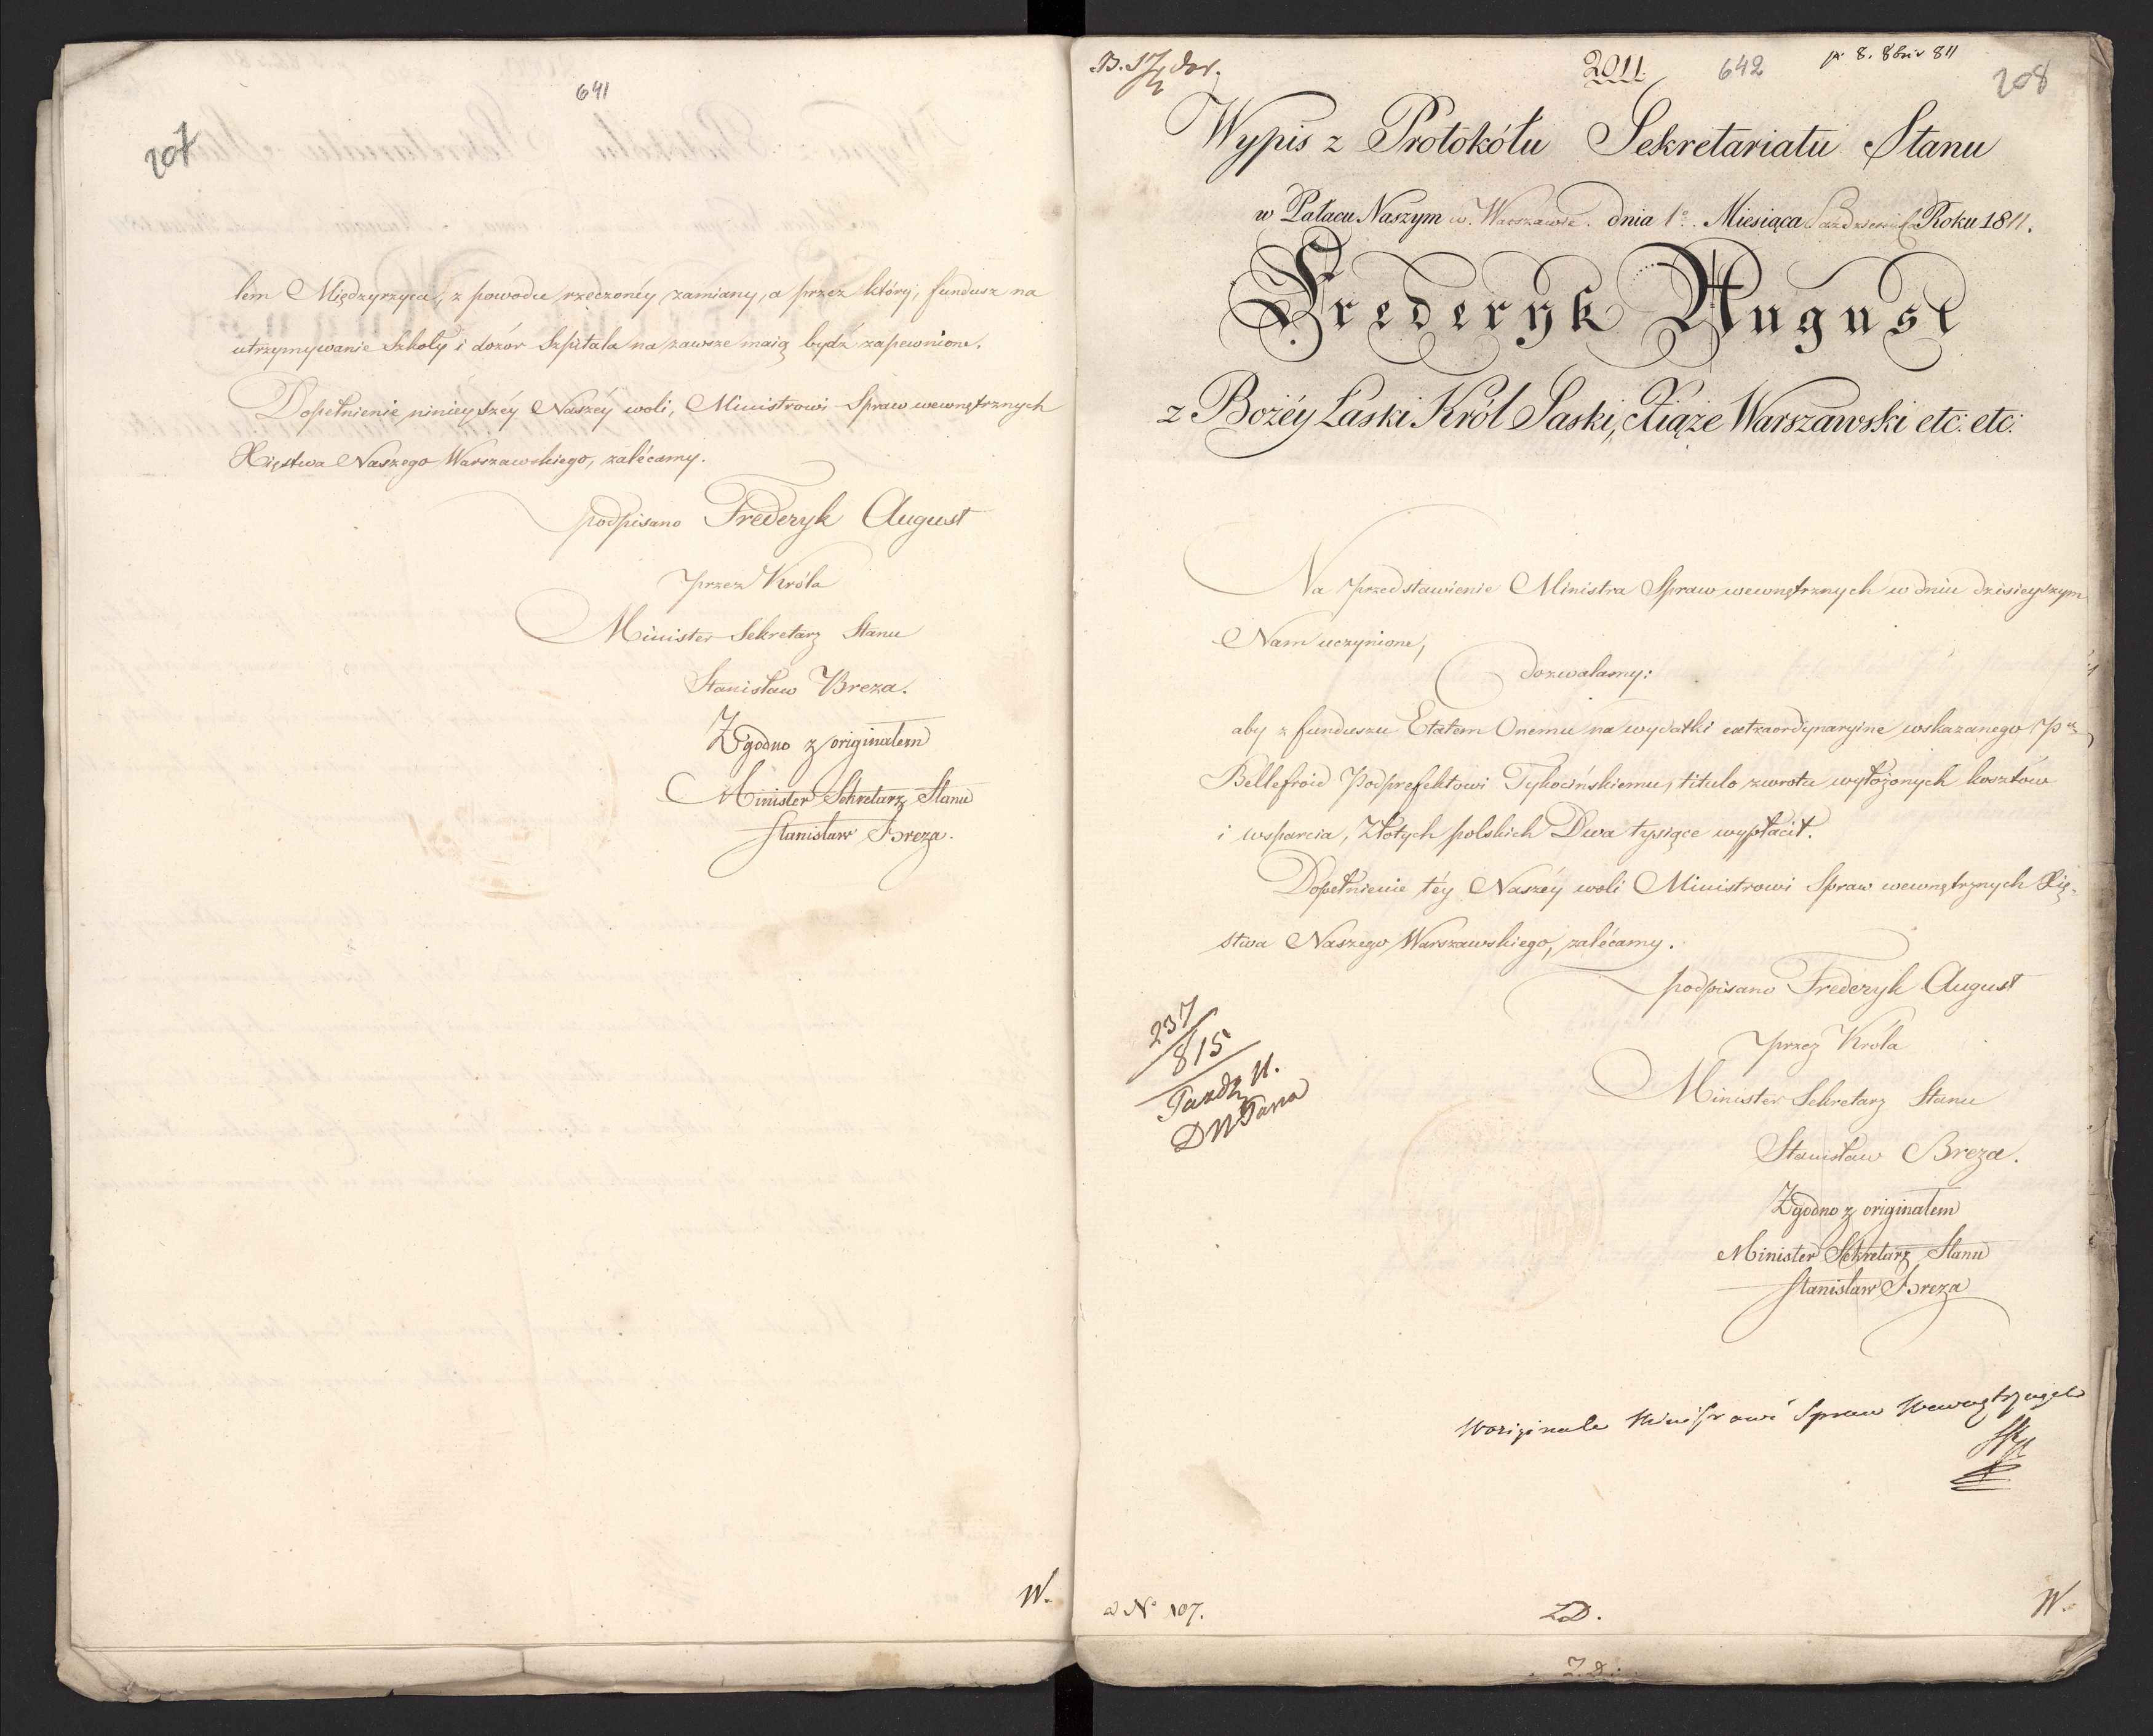 641
207
lem Międzyrzyca, z powodu rzeczonéy zamiany, a przez który, fundusz na
utrzymywanie Szkoły i dozór Szpitala na zawsze maią bydź zapewnione.
Dopełnienie ninieyszéy Naszéy woli, Ministrowi Spraw wewnętrznych
Xięstwa Naszego Warszawskiego, zalécamy.
podpisano Frederyk August
przez Króla
Minister Sekretarz Stanu
Stanisław Breza.
Zgodno z originałem
Minister Sekretarz Stanu
Stanisław Breza.
W.
2011
642
pr 8. 8bris 811
208
Wypis z Protokółu Sekretariatu Stanu
w Pałacu Naszym w Warszawie dnia 1o Miesiąca Października Roku 1811.
Frederyk August
z Bożéy Łaski Król Saski, Xiąże Warszawski etc: etc:
Na przedstawienie Ministra Spraw wewnętrznych w dniu dzisieyszym
Nam uczynione,
dozwalamy:
aby z funduszu Etatem Onemu na wydatki extraordynaryine wskazanego Pu
Bellefroid Podprefektowi Tykocińskiemu, titulo zwrotu wyłożonych kosztów
i wsparcia, Złotych polskich Dwa tysiące wypłacił.
Dopełnienie téy Naszéy woli Ministrowi Spraw wewnętrznych Xię-
stwa Naszego Warszawskiego, zalécamy.
podpisano Frederyk August
przez Króla
Minister Sekretarz Stanu
Stanisław Breza.
Zgodno z originałem
Minister Sekretarz Stanu
Stanisław Breza
237
815
W originale Ministrowi Spraw Wewnętrznych
ad No 107.
ZD.
W.
Z.D.